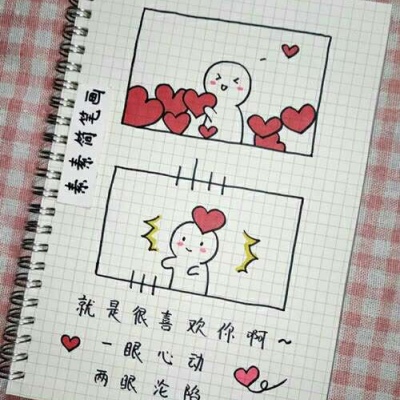 素素简笔画
就是很喜欢你啊~
一眼心动
两眼沦陷